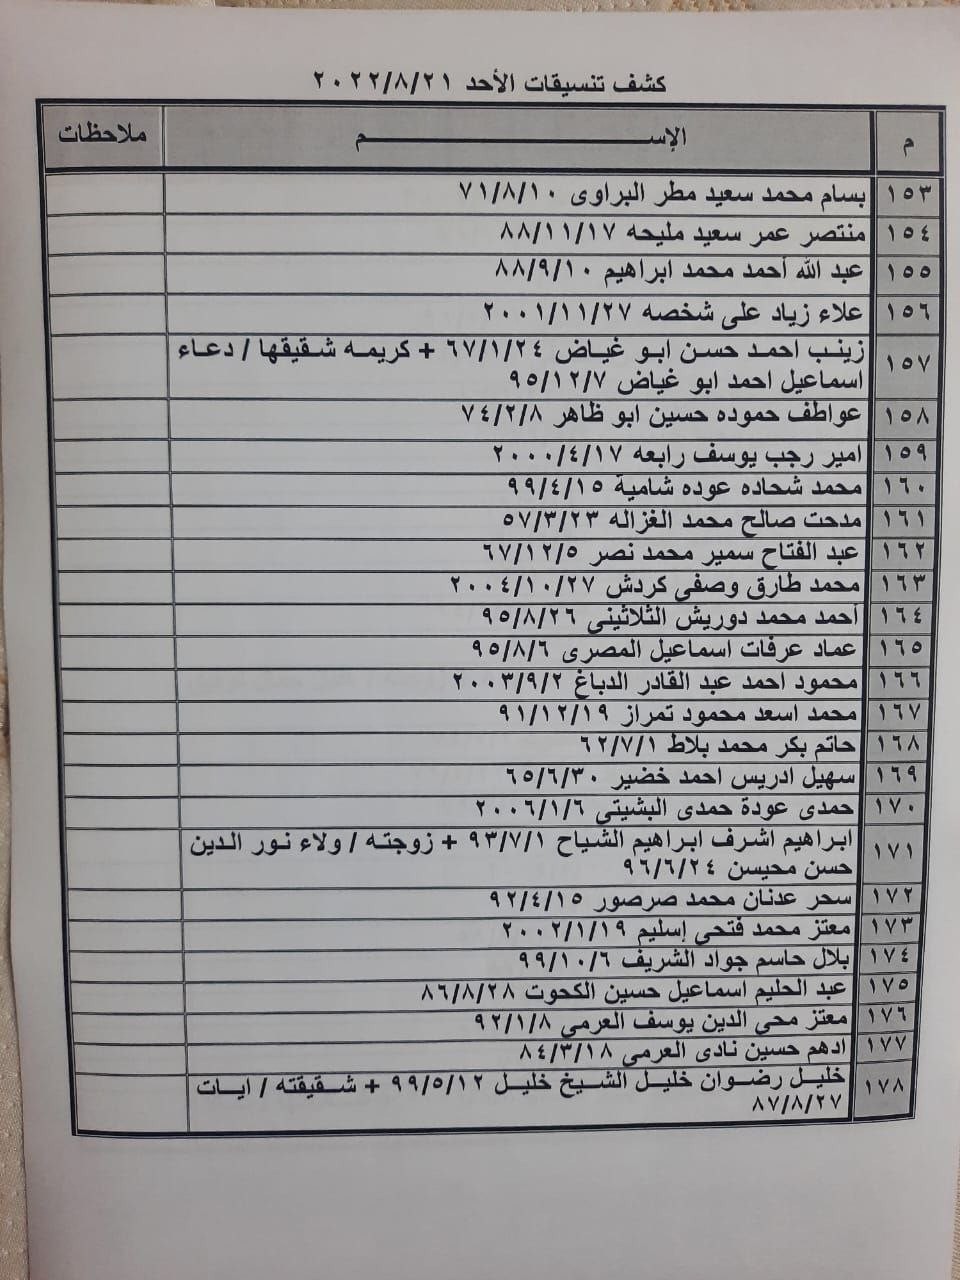 كشف تنسيقات الأحد ٢٠٢٢/٨/٢١
م الإســـــــــم ملاحظات
١٥٣ بسام محمد سعيد مطر البراوى ٧١/٨/١٠
١٥٤ منتصر عمر سعيد مليحه ٨٨/١١/١٧
١٥٥ عبد الله أحمد محمد ابراهيم ٨٨/٩/١٠
١٥٦ علاء زياد على شخصه ٢٠٠١/١١/٢٧
١٥٧ زينب احمد حسن ابو غياض ٦٧/١/٢٤ + كريمه شقيقها / دعاء
اسماعيل احمد ابو غياض ٩٥/١٢/٧
١٥٨ عواطف حموده حسين ابو ظاهر ٧٤/٢/٨
١٥٩ امير رجب يوسف رابعه ٢٠٠٠/٤/١٧
١٦٠ محمد شحاده عوده شامية ٩٩/٤/١٥
١٦١ مدحت صالح محمد الغزاله ٥٧/٣/٢٣
١٦٢ عبد الفتاح سمير محمد نصر ٦٧/١٢/٥
١٦٣ محمد طارق وصفي كردش ٢٠٠٤/١٠/٢٧
١٦٤ أحمد محمد دوريش الثلاثينى ٩٥/٨/٢٦
١٦٥ عماد عرفات اسماعيل المصرى ٩٥/٨/٦
١٦٦ محمود احمد عبد القادر الدباغ ٢٠٠٣/٩/٢
١٦٧ محمد اسعد محمود تمراز ٩١/١٢/١٩
١٦٨ حاتم بكر محمد بلاط ٦٢/٧/١
١٦٩ سهيل ادريس احمد خضير ٦٥/٦/٣٠
١٧٠ حمدى عودة حمدى البشيتي ٢٠٠٦/١/٦
١٧١ ابراهيم اشرف ابراهيم الشياح ٩٣/٧/١ + زوجته / ولاء نور الدين
حسن محيسن ٩٦/٦/٢٤
١٧٢ سحر عدنان محمد صرصور ٩٢/٤/١٥
١٧٣ معتز محمد فتحى إسليم ٢٠٠٢/١/١٩
١٧٤ بلال حاسم جواد الشريف ٩٩/١٠/٦
١٧٥ عبد الحليم اسماعيل حسين الكحوت ٨٦/٨/٢٨
١٧٦ معتز محي الدين يوسف العرمي ٩٢/١/٨
١٧٧ ادهم حسين نادى العرمي ٨٤/٣/١٨
١٧٨ خليل رضوان خليل الشيخ خليل ٩٩/٥/١٢ + شقيقته / ايات
٨٧/٨/٢٧